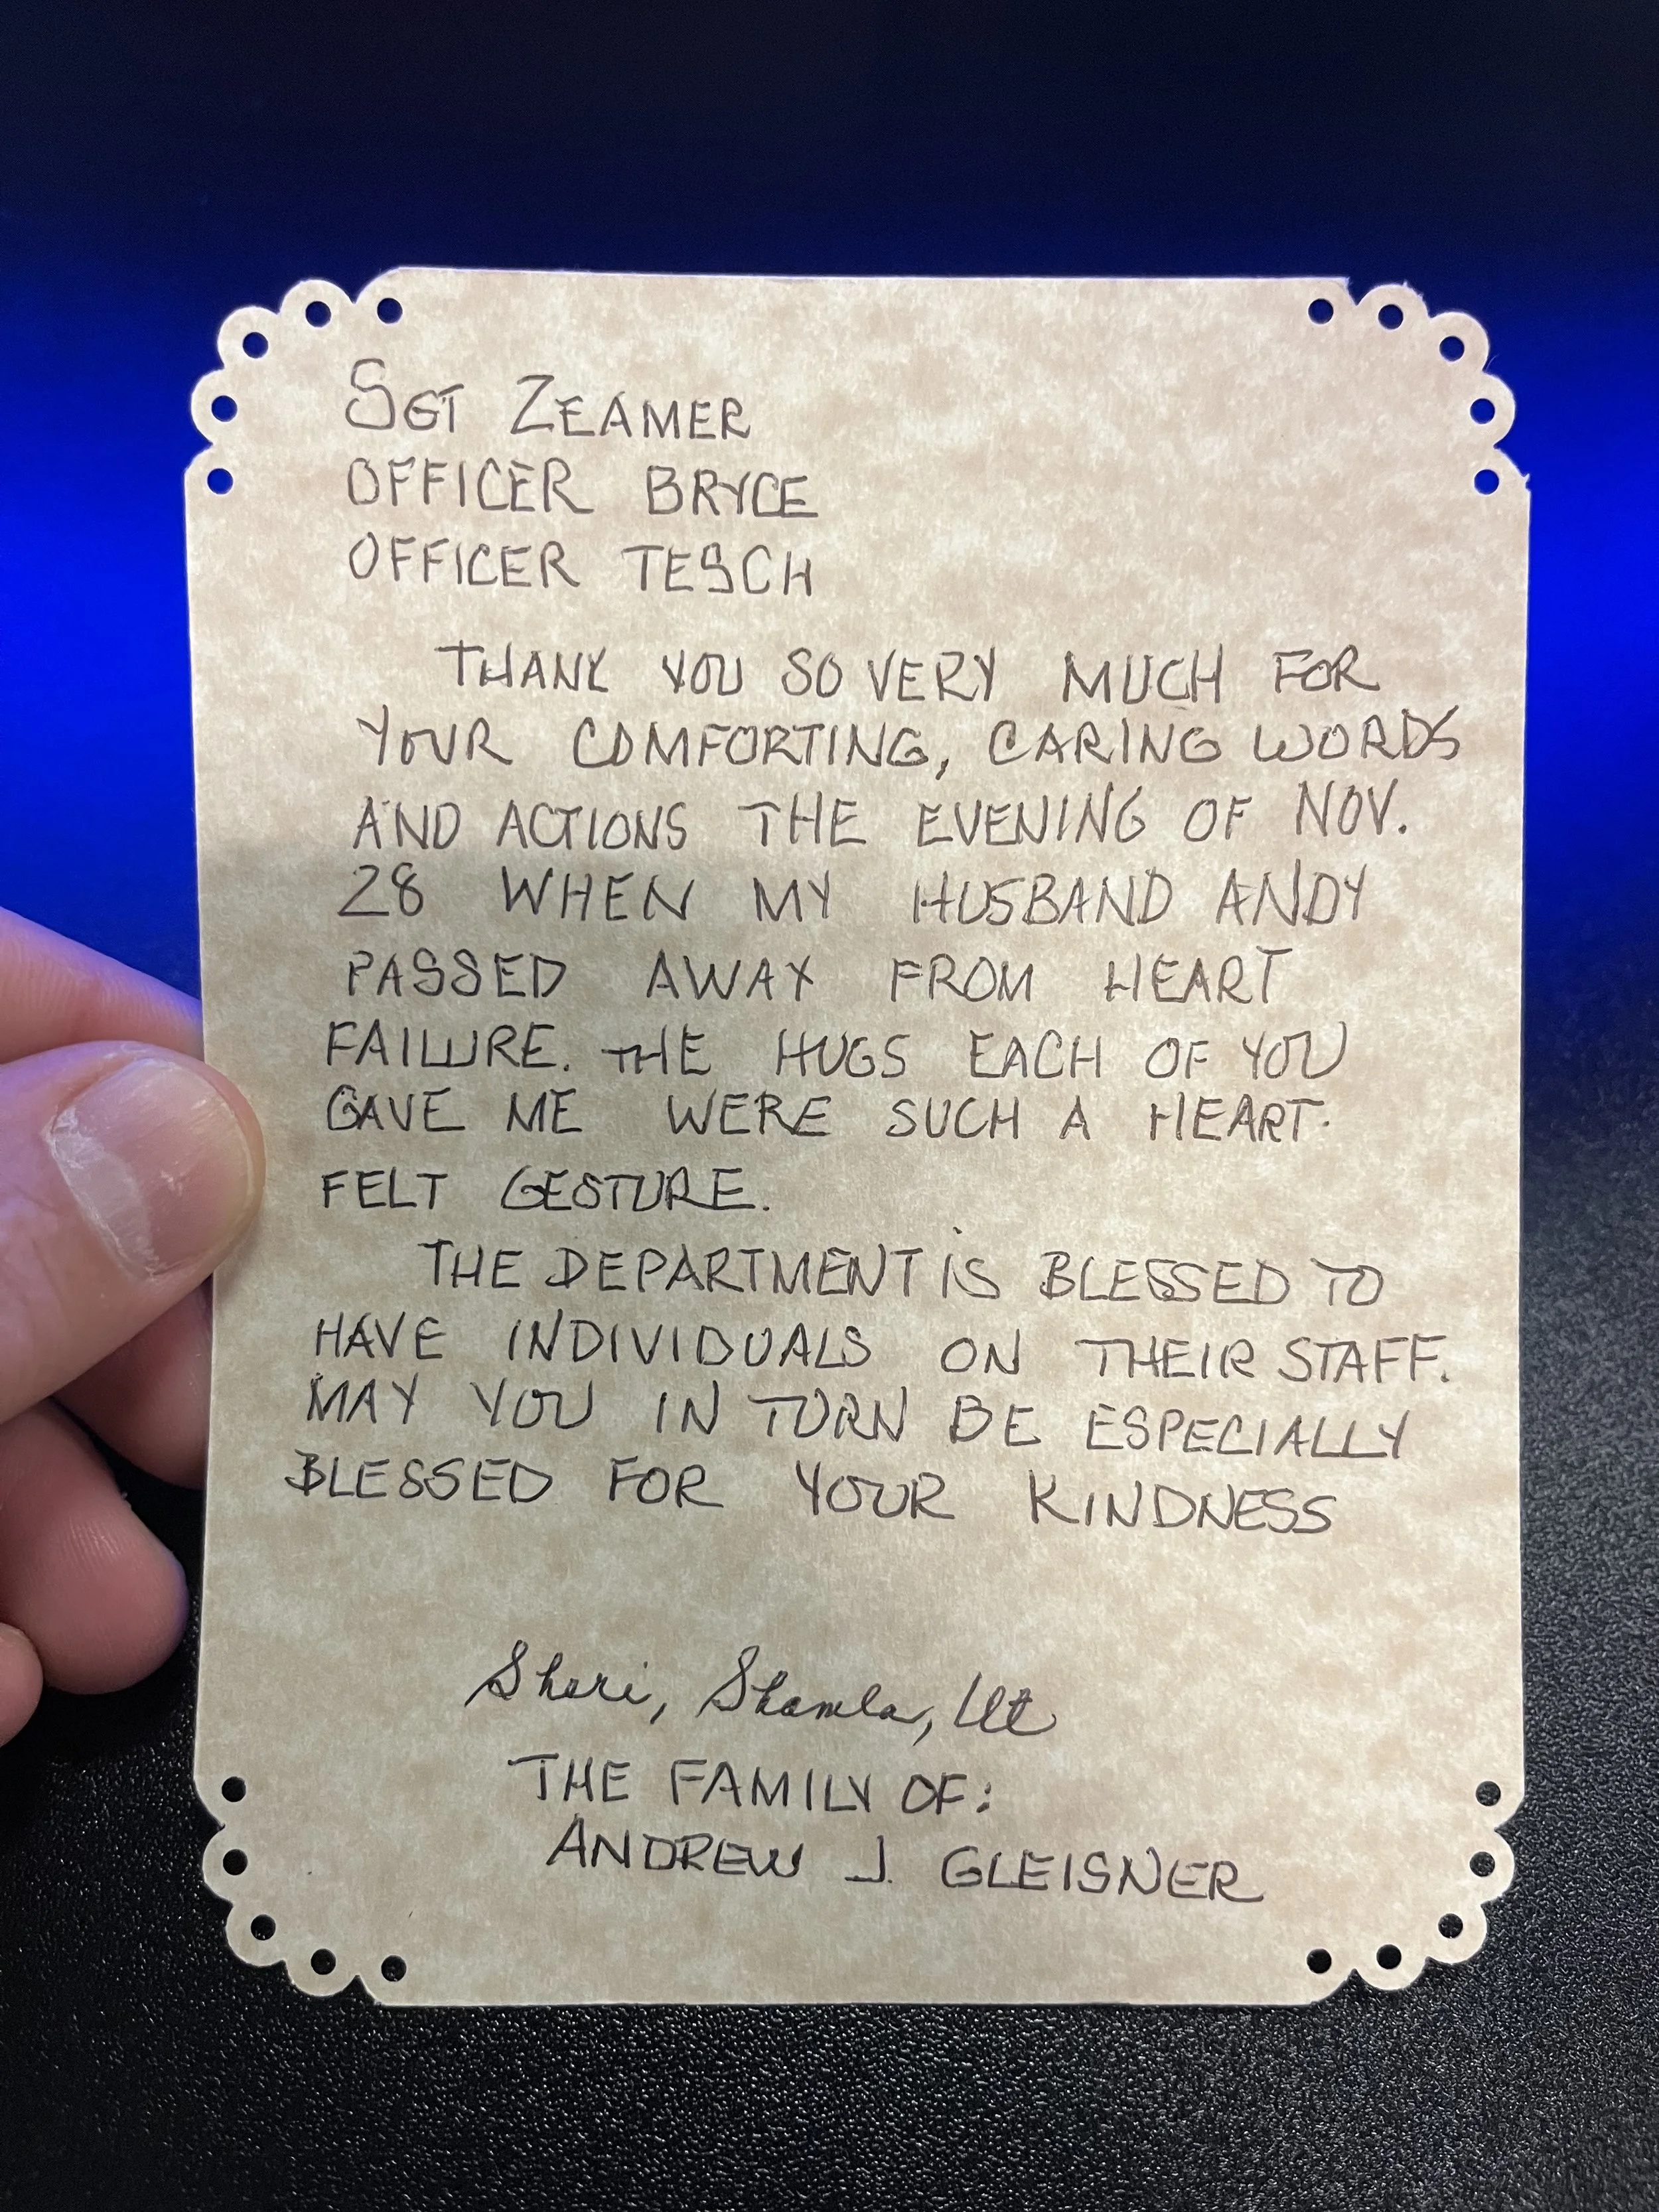 SGT ZEAMER
OFFICER BRYCE
OFFICER TESCH
THANK YOU SO VERY MUCH FOR
YOUR COMFORTING, CARING WORDS
AND ACTIONS THE EVENING OF NOV.
28 WHEN MY HUSBAND ANDY
PASSED AWAY FROM HEART
FAILURE. THE HUGS EACH OF YOU
GAVE ME WERE SUCH A HEART-
FELT GESTURE.
THE DEPARTMENT IS BLESSED TO
HAVE INDIVIDUALS ON THEIR STAFF.
MAY YOU IN TURN BE ESPECIALLY
BLESSED FOR YOUR KINDNESS
Sheri,
THE FAMILY OF:
ANDREW J. GLEISNER